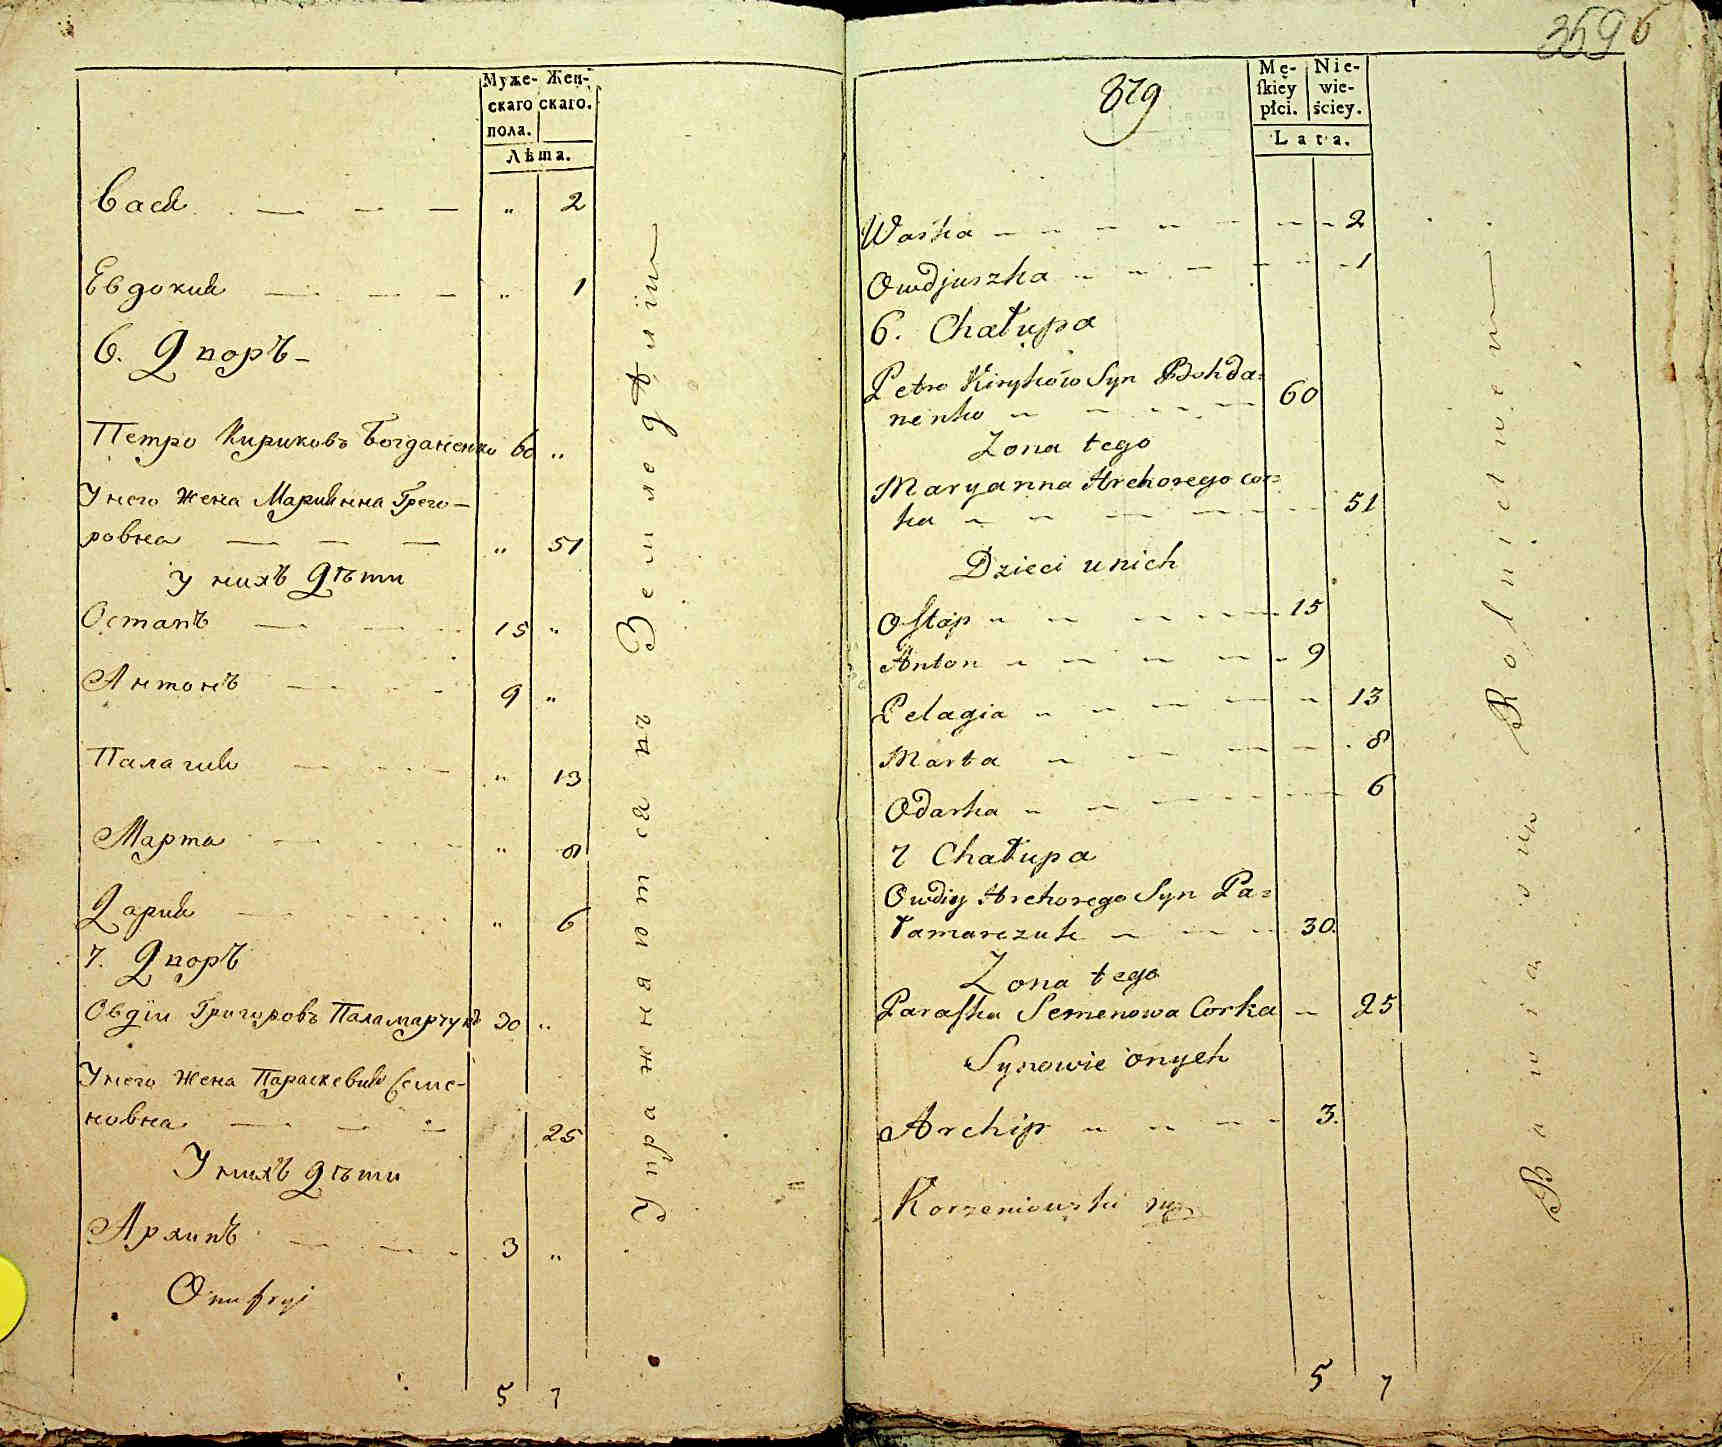 Муже- Жен-
скаго скаго.
пола.
Лѣта.
Васѧ — — — „ 2
Евдокия — — — „ 1
6. Дворъ
Петро Кириковъ Богданенко 60 „
У него жена Марианна Григо-
ровна — — — „ 51
У нихъ дѣти
Остапъ — — 15 „
Антонъ — — 9 „
Палагия — — „ 13
Марта — — „ 8
Дария — — „ 6
7. Дворъ
Овдіи Григоровъ Паламарчукъ 30 „
У него жена Параскевия Семе-
новна — — — 25
У нихъ дѣти
Архипъ — — 3 „
Onufryi
5 7
Упражнвются въ Земледѣліи
359 б
879
Mę- Nie-
ſkiey wie-
płci. ściey.
Lata.
Waśka — — — 2
Owdjuszka — — — 1
6. Chałupa
Petro Kirykow Syn Bohda=
nenko — — — 60
Zona tego
Maryanna Hrehorego cor=
ka — — — 51
Dzieci u nich
Oſtap — — — 15
Anton — — — 9
Pelagia — — — 13
Marta — — — 8
Odarka — — — 6
7 Chałupa
Owdiy Hrehorego Syn Pa=
łamarczuk — — — 30.
Zona tego
Paraſka Semenowa Corka — 25
Synowie onych
Archip — — — 3.
Korzeniowski
5 7
Bawią się Rolnictwem